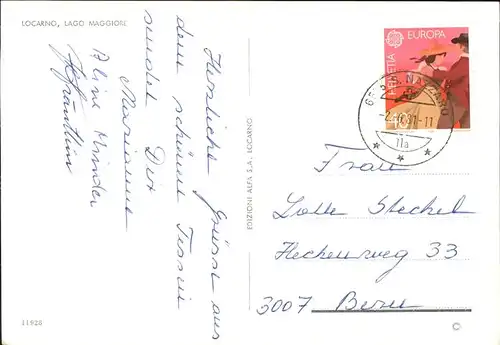 LOCARNO, LAGO MAGGIORE
Herzliche Grüsse aus
dem schönen Tessin
sendet Dir
Marianne
Aline Minder
EDIZIONI ALFA S.A. LOCARNO
EUROPA
HELVETIA
40
-2.-6.81-11
11a
Frau
Lotte Steckel
Heckenweg 33
3007 Bern
11928
©